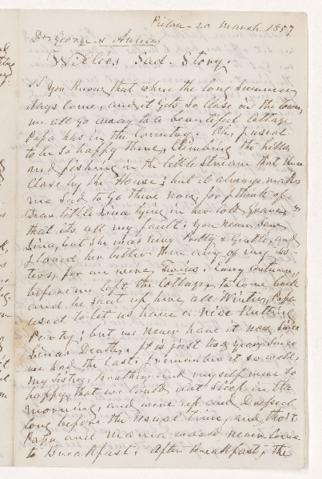 Pictou 20 March 1857
Willie's Sad Story.
You know that when the long summer
days come, and it gets so close in the town,
we all go away to a beautiful cottage
Papa has in the Country. Oh, I used
to be so happy there, climbing the hills
and fishing in the little stream that runs
close by the House; but it always makes
me sad to go there now, for I think of
dear little Lina lying in her cold grave &
that its all my fault; you never saw
Lina, but she was very Pretty & Gentle, and
I loved her better than any of my
before we left the Cottage, to come back
and be shut up here all Winter, Papa
used to let us have a nice Nutting
Party; but we never have it now, since
Lina's Death. It is just two years since
we had the last; I remember it so well,
my sisters, brother and myself were so
happy that we could not sleep in the
morning, and were up and dressed
long before the usual time, and thought
Papa and Mama would never come
to Breakfast. After Breakfast, the